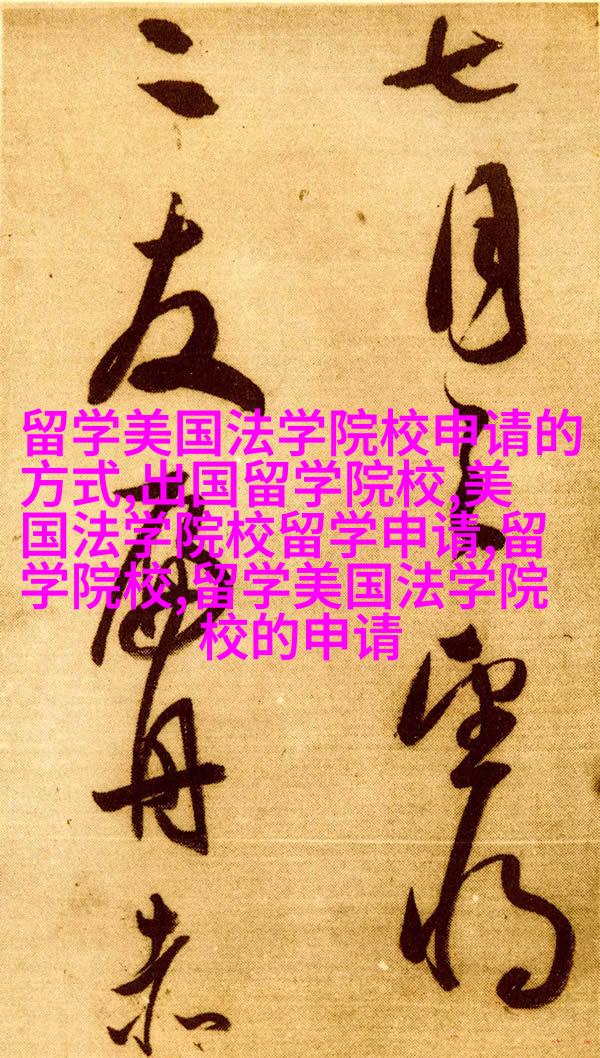 七月之望将
二友舟赤
留学美国法学院校申请的
方式,出国留学院校,美
国法学院校留学申请,留
学院校,留学美国法学院
校的申请